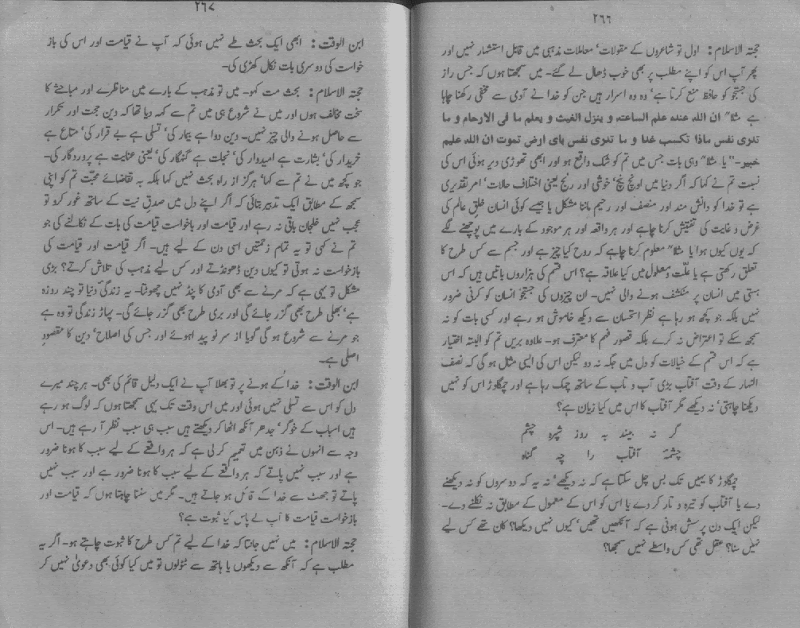 ۲۶۶
حجتہ الاسلام: اول تو شاعروں کے مقولات' معاملات مذہبی میں قابل استشمار نہیں اور
پھر آپ اس کو اپنے مطلب پر بھی خوب ڈھال لے گئے۔ میں سمجھتا ہوں کہ جس راز
کی جستجو کو حافظ منع کرتا ہے' وہ وہ اسرار ہیں جن کو خدا نے آدمی سے مخفی رکھنا چاہا
ہے مثلا" ان الله عنده علم الساعته و ينزل الغيث و يعلم ما فى الارحام و ما
تدرى نفس ماذا تكسب غدا و ما تدرى نفس باى ارض تموت ان الله عليم
خبير۔" یا مثلا" وہی بات جس میں تم کو شک واقع ہو اور ابھی تھوڑی دیر ہوئی اس کی
نسبت تم نے کہا کہ اگر دنیا میں اونچ نیچ' خوشی اور رنج یعنی اختلاف حالات' امر تقدیری
ہے تو خدا کو دانش مند اور منصف اور رحیم ماننا مشکل یا جیسے کوئی انسان خلق عالم کی
غرض و غایت کی تفتیش کرنا چاہے اور ہر واقعہ اور ہر موجود کے بارے میں پوچھنے لگے
کہ یوں کیوں ہوا یا مثلا" معلوم کرنا چاہے کہ روح کیا چیز ہے اور جسم سے کس طرح کا
تعلق رکھتی ہے یا علت و معلول میں کیا علاقہ ہے؟ اس قسم کی ہزاروں باتیں ہیں کہ اس
ہستی میں انسان پر منکشف ہونے والی نہیں۔ ان چیزوں کی جستجو انسان کو کرنی ضرور
نہیں بلکہ جو کچھ ہو رہا ہے نظر استحسان سے دیکھ خاموش ہو رہے اور کسی بات کو نہ
سمجھ سکے تو اعتراض نہ کرے بلکہ قصور فہم کا معترف ہو۔ علاوہ بریں تم کو البتہ اختیار
ہے کہ اس قسم کے خیالات کو دل میں جگہ نہ دو لیکن اس کی ایسی مثل ہو گی کہ نصف
النہار کے وقت آفتاب بڑی آب و تاب کے ساتھ چمک رہا ہے اور چمگاوڑ اس کو نہیں
دیکھنا چاہتی' نہ دیکھے مگر آفتاب کا اس میں کیا زیاں ہے؟
گر نہ بیند بہ روز شپرہ چشم
چشمہ آفتاب را چہ گناہ
چمگاوڑ کا یہیں تک بس چل سکتا ہے کہ نہ دیکھے' نہ یہ کہ دوسروں کو نہ دیکھنے
دے یا آفتاب کو تیرہ و تار کر دے یا اس کو اس کے معمول کے مطابق نہ نکلنے دے۔
لیکن ایک دن پرسش ہونی ہے کہ آنکھیں تھیں' کیوں نہیں دیکھا؟ کان تھے کس لیے
نہیں سنا؟ عقل تھی کس واسطے نہیں سمجھا؟
۲۶۷
ابن الوقت: ابھی ایک بحث طے نہیں ہوئی کہ آپ نے قیامت اور اس کی باز
خواست کی دوسری بات نکال کھڑی کی۔
حجتہ الاسلام: بحث مت کہو۔ میں تو مذہب کے بارے میں مناظرے اور مباحثے کا
سخت مخالف ہوں اور میں نے شروع ہی میں تم سے کہہ دیا تھا کہ دین حجت اور تکرار
سے حاصل ہونے والی چیز نہیں۔ دین دوا ہے بیمار کی' تسلی ہے بے قرار کی' متاع ہے
خریدار کی' بشارت ہے امیدوار کی' نجات ہے گنہگار کی' یعنی عنایت ہے پروردگار کی۔
جو کچھ میں نے تم سے کہا' ہرگز از راہ بحث نہیں کہا بلکہ بہ تقاضائے محبت تم کو اپنی
سمجھ کے مطابق ایک تدبیر بتائی کہ اگر اپنے دل میں صدق نیت کے ساتھ غور کرو تو
عجب نہیں خلجان باقی نہ رہے اور قیامت اور باخواست قیامت کی بات کے نکالنے کی جو
تم نے کہی تو یہ تمام زحمتیں اسی دن کے لیے ہیں۔ اگر قیامت اور قیامت کی
بازخواست نہ ہوتی تو کیوں دین ڈھونڈتے اور کس لیے مذہب کی تلاش کرتے؟ بڑی
مشکل تو یہی ہے کہ مرنے سے بھی آدمی کا پنڈ نہیں چھوٹتا۔ یہ زندگی دنیا تو چند روزہ
ہے' بھلی طرح بھی گزر جائے گی اور بری طرح بھی گزر جائے گی۔ پہاڑ زندگی تو وہ ہے
جو مرنے سے شروع ہو گی گویا از سر نو پیدا ہوئے اور جس کی اصلاح' دین کا مقصود
اصلی ہے۔
ابن الوقت: خدا کے ہونے پر تو بھلا آپ نے ایک دلیل قائم کی بھی۔ ہر چند میرے
دل کو اس سے تسلی نہیں ہوئی اور میں اس وقت تک یہی سمجھتا ہوں کہ لوگ ہو رہے
ہیں اسباب کے خوگر' جدھر آنکھ اٹھا کر دیکھتے ہیں سبب ہی سبب نظر آ رہے ہیں۔ اس
وجہ سے انہوں نے ذہن میں تعمیم کر لی ہے کہ ہر واقعے کے لیے سبب کا ہونا ضرور
ہے اور سبب نہیں پاتے کہ ہر واقعے کے لیے سبب کا ہونا ضرور ہے اور سبب نہیں
پاتے تو جھٹ سے خدا کے قائل ہو جاتے ہیں۔ مگر میں سننا چاہتا ہوں کہ قیامت اور
بازخواست قیامت کا آپ کے پاس کیا ثبوت ہے؟
حجتہ الاسلام: میں نہیں جانتا کہ خدا کے لیے تم کس طرح کا ثبوت چاہتے ہو۔ اگر یہ
مطلب ہے کہ آنکھ سے دیکھوں یا ہاتھ سے ٹٹولوں تو میں کیا کوئی بھی دعویٰ نہیں کر